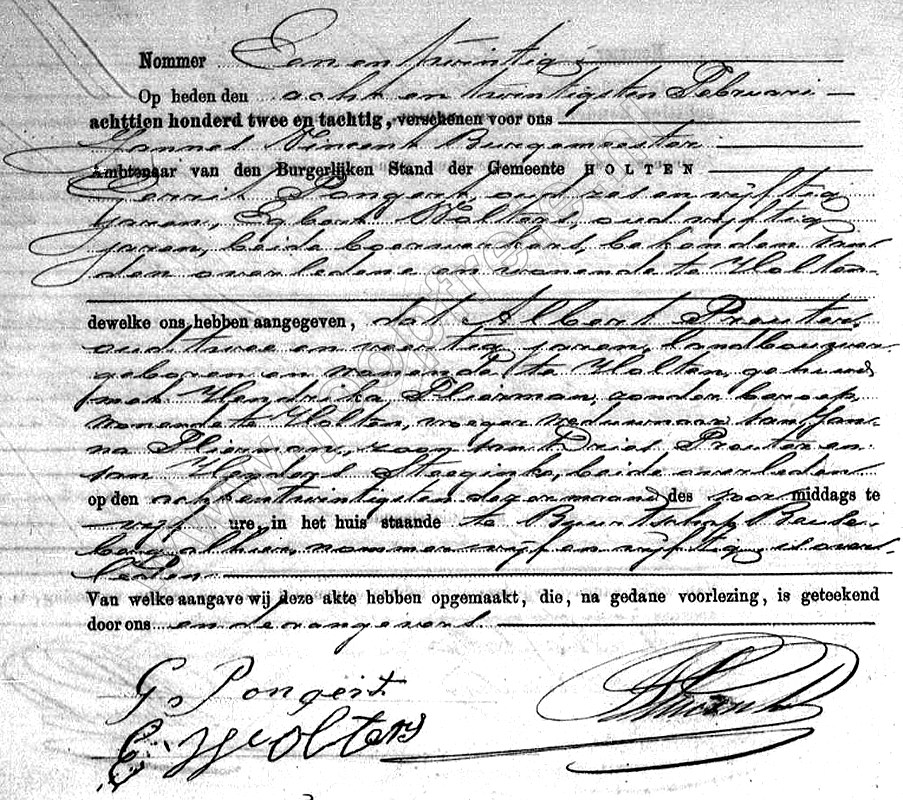 Nommer Een en twintig
Op heden den acht en twintigsten Februari
achttien honderd twee en tachtig, verschenen voor ons
Jannes Vincent Burgemeester
Ambtenaar van den Burgerlijken Stand der Gemeente HOLTEN
Gerrit Pongert, oud zes en vijftig
jaren, Egbert Wolters, oud vijftig
jaren, beide boerwerkers, bekenden van
den overledene en wonende te Holten
dewelke ons hebben aangegeven, dat Albert Preuter,
oud twee en veertig jaren, landbouwer
geboren en wonende te Holten, gehuwd
met Hendrika Plierman, zonder beroep,
wonende te Holten, vroeger weduwnaar van Jan-
na Plierman, zoon van Dries Preuter en
van Steeginke, beide overleden
op den achtentwintigsten dezer maand des voor middags te
vijf ure, in het huis staande te Buurtschap Beuse-
berg alhier, nommer vijf en vijftig is over-
leden
Van welke aangave wij deze akte hebben opgemaakt, die, na gedane voorlezing, is geteekend
door ons en de aangevers
G. Pongert
E Wolters